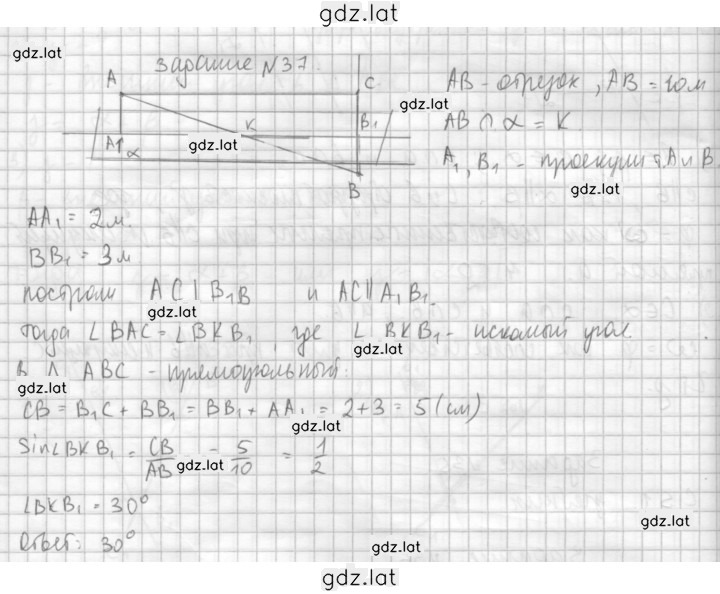 gdz.lat
gdz.lat
задание N37.
A C K B₁ A₁ α B
gdz.lat
gdz.lat
AB - отрезок, AB = 10м
AB ∩ α = K
A₁, B₁ - проекции т. A и B
gdz.lat
AA₁ = 2 м.
BB₁ = 3 м
построим AC ⊥ B₁B и AC ∥ A₁B₁.
gdz.lat
тогда ∠BAC = ∠BKB₁, где ∠BKB₁ - искомый угол.
gdz.lat
в Δ ABC - прямоугольный:
gdz.lat
CB = B₁C + BB₁ = BB₁ + AA₁ = 2+3 = 5 (см)
gdz.lat
Sin∠BKB₁ = CB/AB = 5/10 = 1/2
gdz.lat
∠BKB₁ = 30°
gdz.lat
Ответ: 30°
gdz.lat
gdz.lat